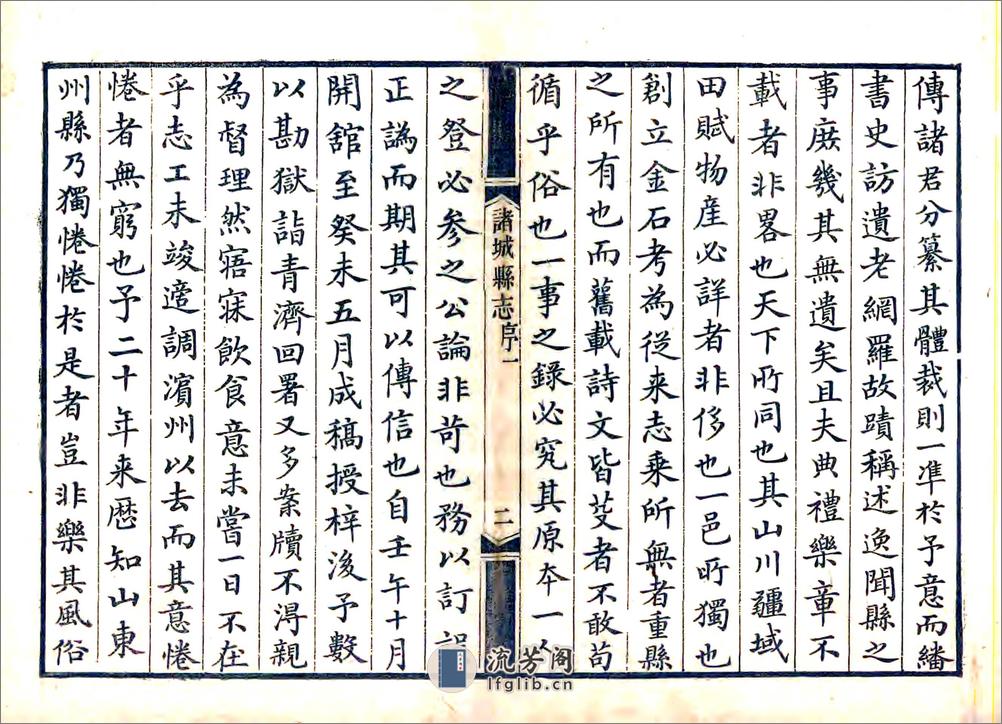 傳諸君分纂其體裁則一凖於予意而繙
書史訪遺老網羅故蹟稱述逸聞縣之
事庶幾其無遺矣且夫典禮樂章不
載者非畧也天下所同也其山川疆域
田賦物産必詳者非侈也一邑所獨也
創立金石考為從来志乘所無者重縣
之所有也而舊載詩文皆芟者不敢苟
循乎俗也一事之錄必究其原夲一人
諸城縣志序一
二
之登必参之公論非苛也務以訂
正譌而期其可以傳信也自壬午十月
開舘至癸未五月成稿授梓後予數
以勘獄詣青濟回署又多案牘不淂親
為督理然寤寐飲食意未嘗一日不在
乎志工未竣適調濵州以去而其意惓
惓者無窮也予二十年来歴知山東
州縣乃獨惓惓於是者豈非樂其風俗
流芳阁
lfglib.cn